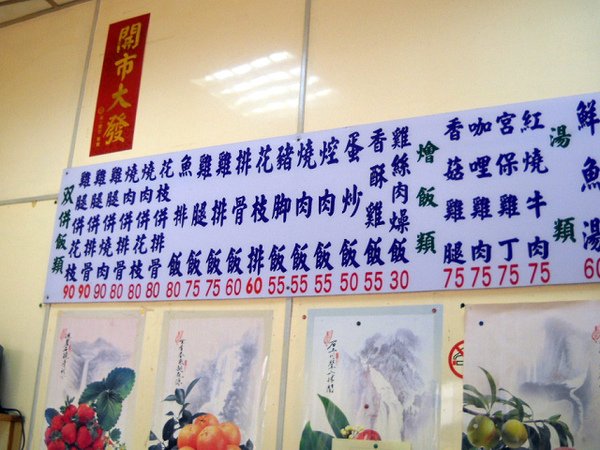 開市大發
双併飯類
雞腿併花枝 90
雞腿併排骨 90
雞腿併燒肉 90
燒肉併排骨 80
燒肉併花枝 80
花枝併排骨 80
魚排飯 80
雞腿飯 75
雞排飯 75
排骨飯 60
花枝排 60
豬腳飯 55
燒肉飯 55
焢肉飯 55
蛋炒飯 50
香酥雞飯 55
雞絲肉燥飯 30
燴飯類
香菇雞腿 75
咖哩雞肉 75
宮保雞丁 75
紅燒牛肉 75
湯類
鮮魚湯 60